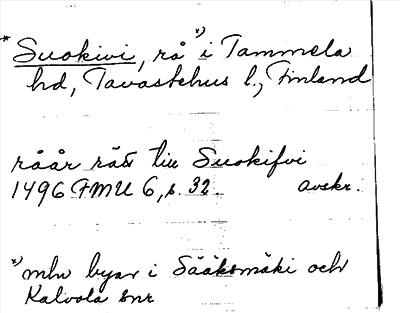 * Suokivi, rå *) i Tammela
hd, Tavastehus l., Finland
råår rätt till Suokifvi
1496 FMU 6, s. 32 avskr.
*) mln byar i Sääksmäki och
Kalvola snr